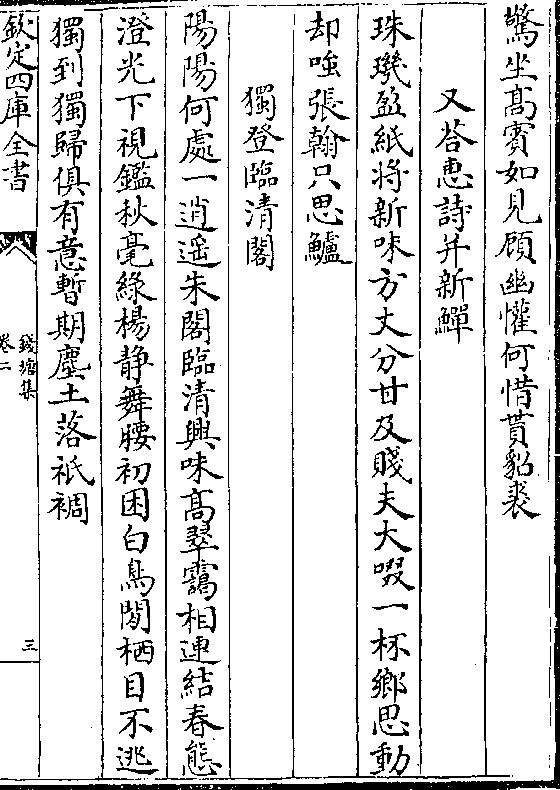 驚坐髙賓如見顧幽懽何惜貰貂裘
又荅惠詩并新鱓
珠璣盈紙将新味方丈分甘及賤夫大啜一杯鄉思動
却嗤張翰只思鱸
獨登臨清閣
陽陽何處一逍遥朱閣臨清興味髙翠靄相連結春態
澄光下視鑑秋毫綠楊静舞腰初困白鳥閒栖目不逃
獨到獨歸俱有意暫期塵土落祇裯
欽定四庫全書
錢塘集
卷二
三